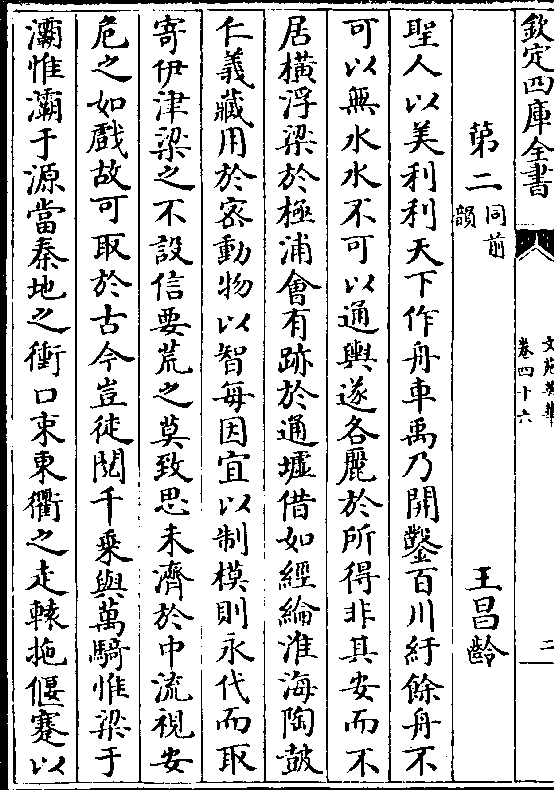 欽定四庫全書
文苑英華
卷四十六
二
第二同前韻
王昌齡
聖人以美利利天下作舟車禹乃開鑿百川紆餘舟不
可以無水水不可以通輿遂各麗於所得非其安而不
居橫浮梁於極浦會有跡於通墟借如經綸淮海陶鼓
仁義藏用於密動物以智每因宜以制模則永代而取
寄伊津梁之不設信要荒之莫致思未濟於中流視安
危之如戲故可取於古今豈徒閲千乗與萬騎惟梁于
灞惟灞于源當秦地之衝口束東衢之走轅拖偃蹇以